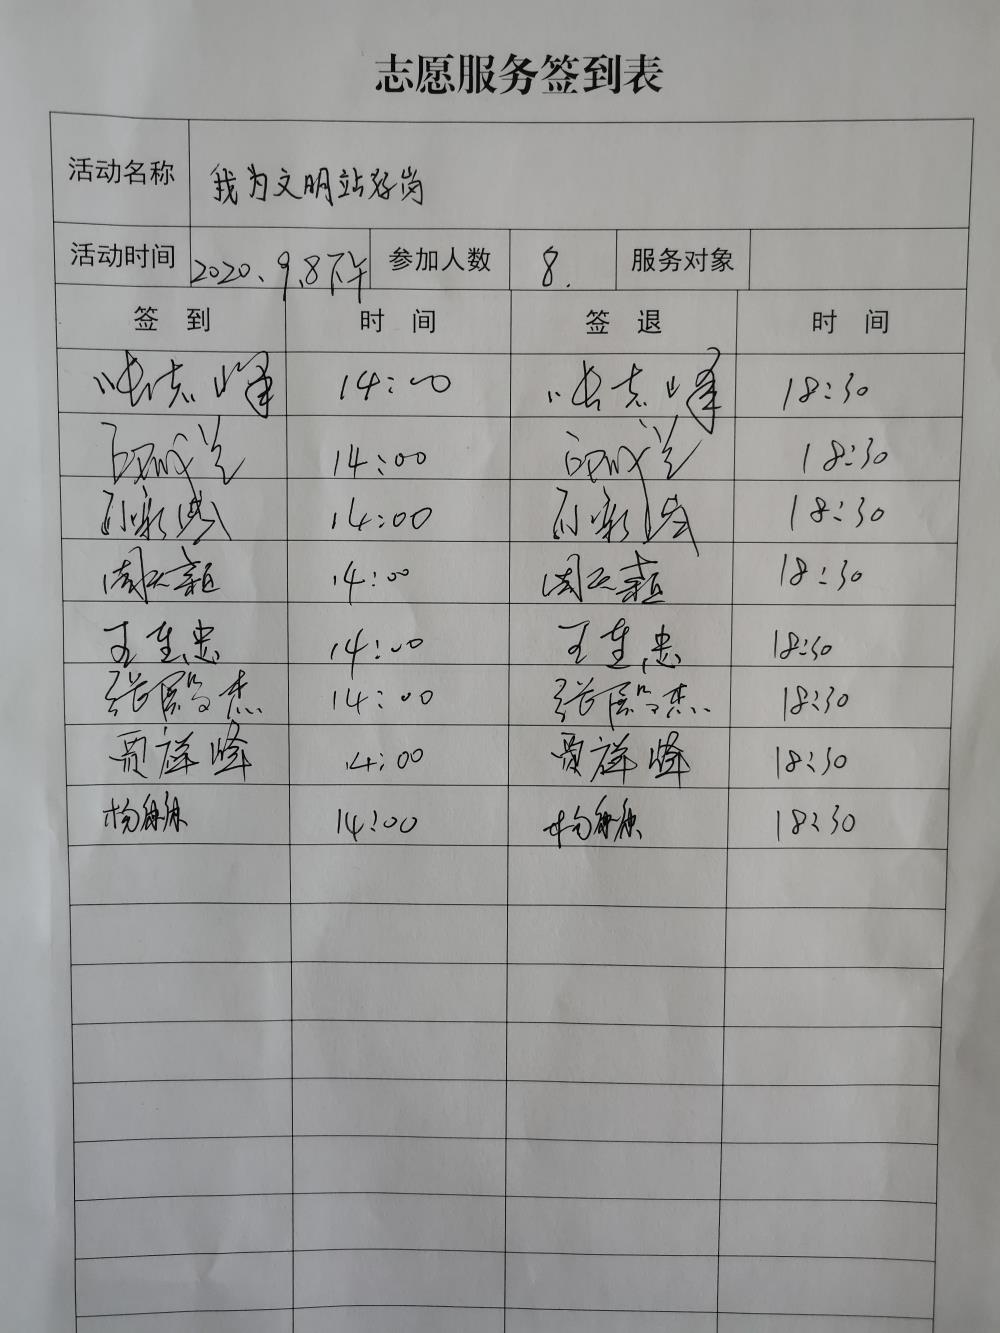 志愿服务签到表
活动名称 我为文明站好岗
活动时间 2020、9.8下午 参加人数 8. 服务对象
签 到 时 间 签 退 时 间
张志峰 14:00 张志峰 18:30
14:00 18:30
孙 14:00 孙 18:30
周 颖 14:00 周 颖 18:30
王连忠 14:00 王连忠 18:30
张殿杰 14:00 张殿杰 18:30
贾祥峰 14:00 贾祥峰 18:30
杨 14:00 杨 18:30